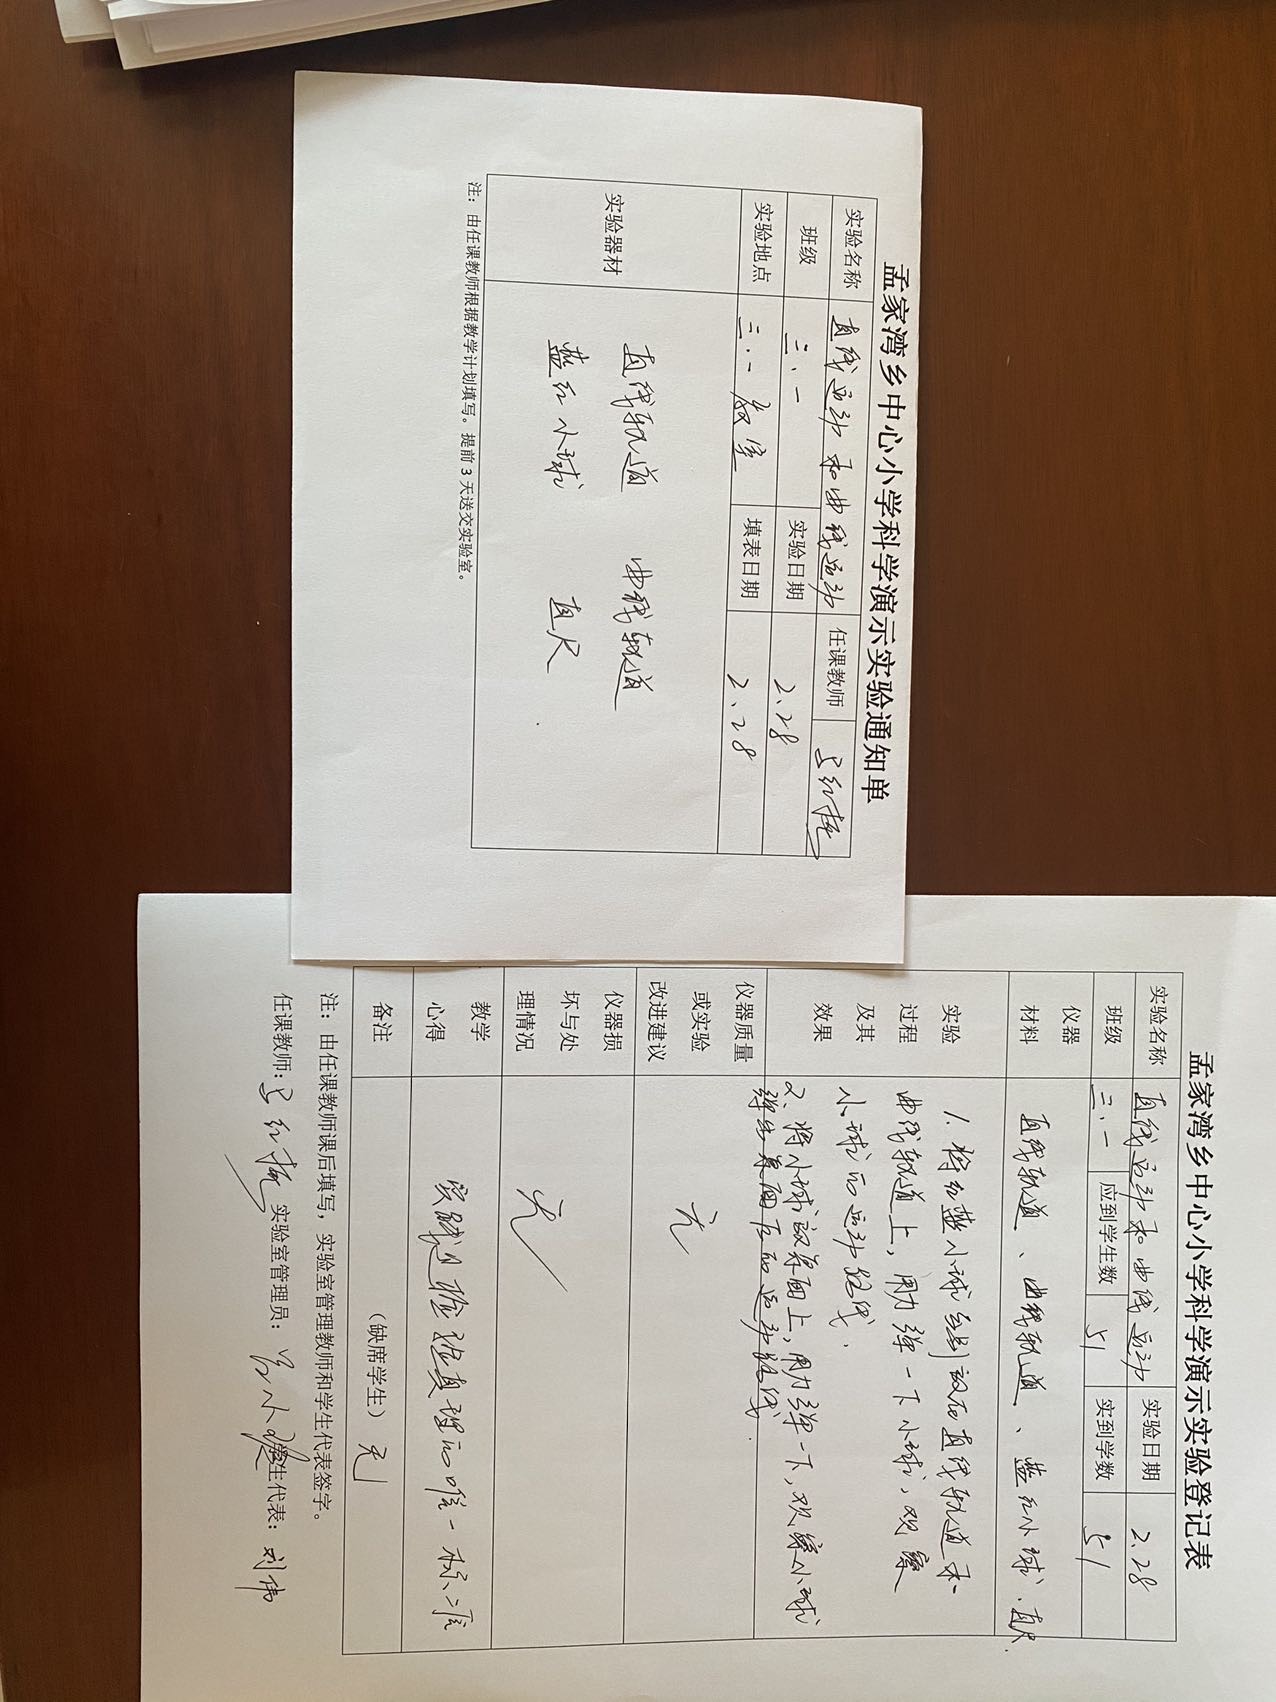 孟家湾乡中心小学科学演示实验通知单
实验名称 直线运动和曲线运动 任课教师
班级 三.一 实验日期 2.28
实验地点 三.一教室 填表日期 2.28
实验器材
直线轨道 曲线轨道
蓝红小球 直尺
注：由任课教师根据教学计划填写。提前 3 天送交实验室。
孟家湾乡中心小学科学演示实验登记表
实验名称 直线运动和曲线运动 实验日期 2.28
班级 三.一 应到学生数 51 实到学数 51
仪器
材料
直线轨道、曲线轨道、蓝红小球、直尺.
实验
过程
及其
效果
1.将红蓝小球分别放在直线轨道和
曲线轨道上,用力弹一下小球,观察
小球的运动路线.
2.将小球放桌面上,用力弹一下,观察小球
弹出桌面后的运动路线.
仪器质量
或实验
改进建议
无
仪器损
坏与处
理情况
无
教学
心得
实践是检验真理的唯一标准
备注 （缺席学生） 无
注：由任课教师课后填写，实验室管理教师和学生代表签字。
任课教师: 实验室管理员: 学生代表: 刘伟